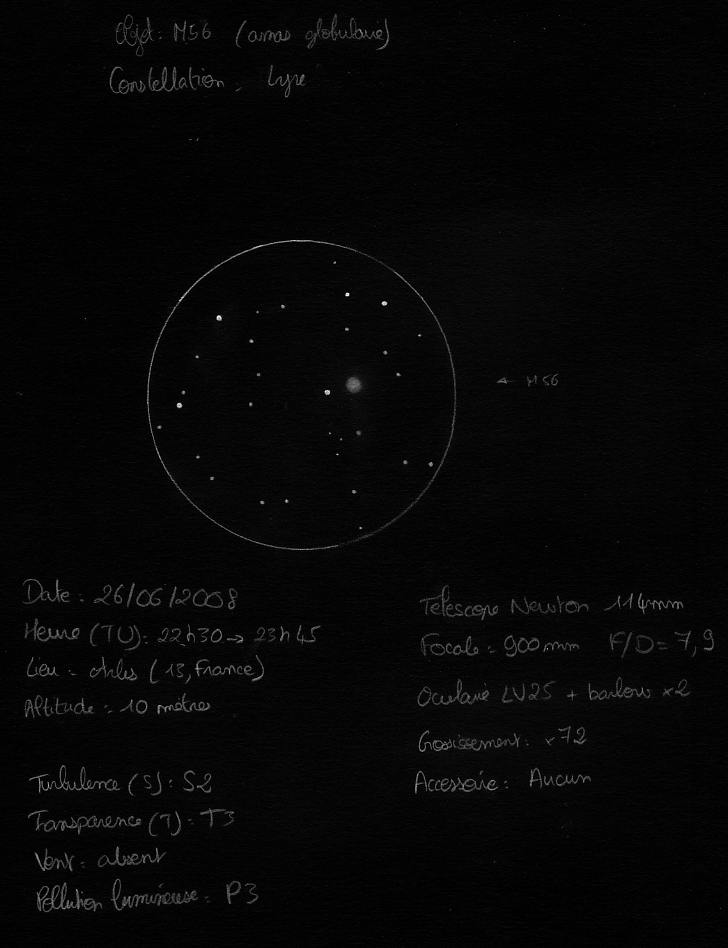 Objet : M56 (amas globulaire)
Constellation : Lyre
← M56
Date : 26/06/2008
Heure (TU) : 22h30 → 23h45
Lieu : Arles (13, France)
Altitude : 10 mètres
Turbulence (S) : S2
Transparence (T) : T3
Vent : absent
Pollution lumineuse : P3
Télescope Newton 114mm
Focale : 900mm F/D = 7,9
Oculaire LV25 + barlow x2
Grossissement : x72
Accessoire : Aucun